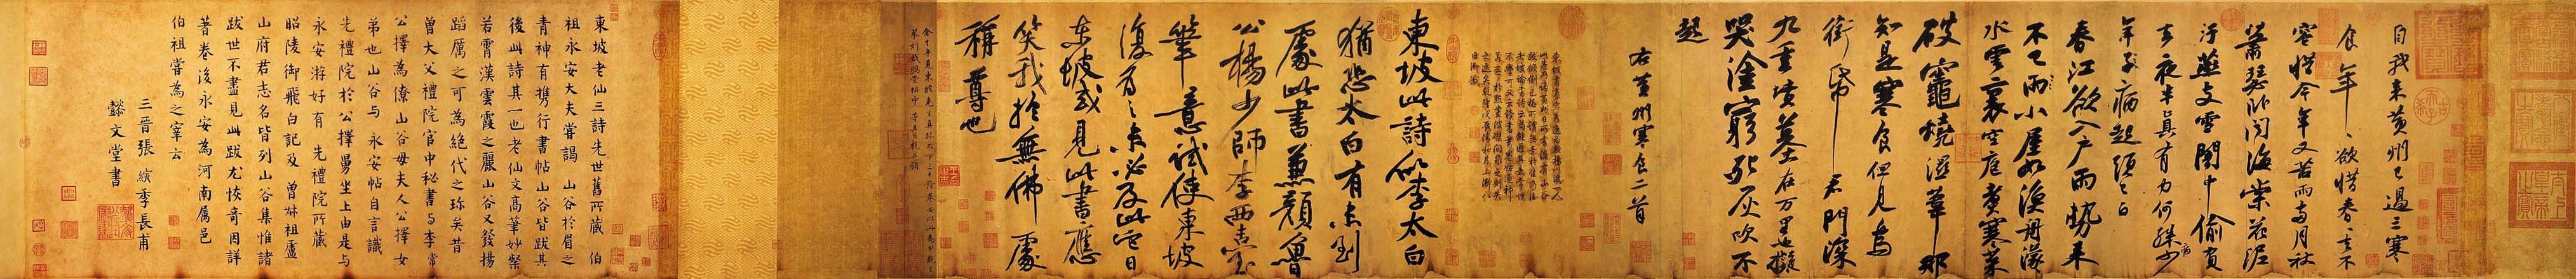 自我來黃州已過三寒
食年〻欲惜春〻去不
容惜今年又苦雨兩月秋
蕭瑟臥聞海棠花泥
汙燕支雪闇中偷負
去夜半真有力何殊病少
年子病起頭已白
春江欲入戶雨勢來
不已雨小屋如漁舟濛〻
水雲裏空庖煮寒菜
破竈燒濕葦那
知是寒食但見烏
銜帋君門深
九重墳墓在万里也擬
哭塗窮死灰吹不
起
右黃州寒食二首
東坡此詩似李太白
猶恐太白有未到
處此書兼顏魯
公楊少師李西臺
筆意試使東坡
復為之未必及此它日
東坡或見此書應
笑我於無佛處
稱尊也
東坡老仙三詩先世舊所藏伯
祖永安大夫嘗謁山谷於眉之
青神有攜行書帖山谷皆跋其
後此詩其一也老仙文高筆妙粲
若霄漢雲霞之麗山谷又發揚
蹈厲之可為絕代之珍矣昔
曾大父禮院官中秘書与李常
公擇為僚山谷母夫人公擇女
弟也山谷与永安帖自言識
先禮院於公擇舅坐上由是与
永安游好有先禮院所藏
昭陵御飛白記及曾叔祖盧
山府君志名皆列山谷集惟諸
跋世不盡見此跋尤恢奇因詳
著卷後永安為河南屬邑
伯祖嘗為之宰云
三晉張縯季長甫
懿文堂書